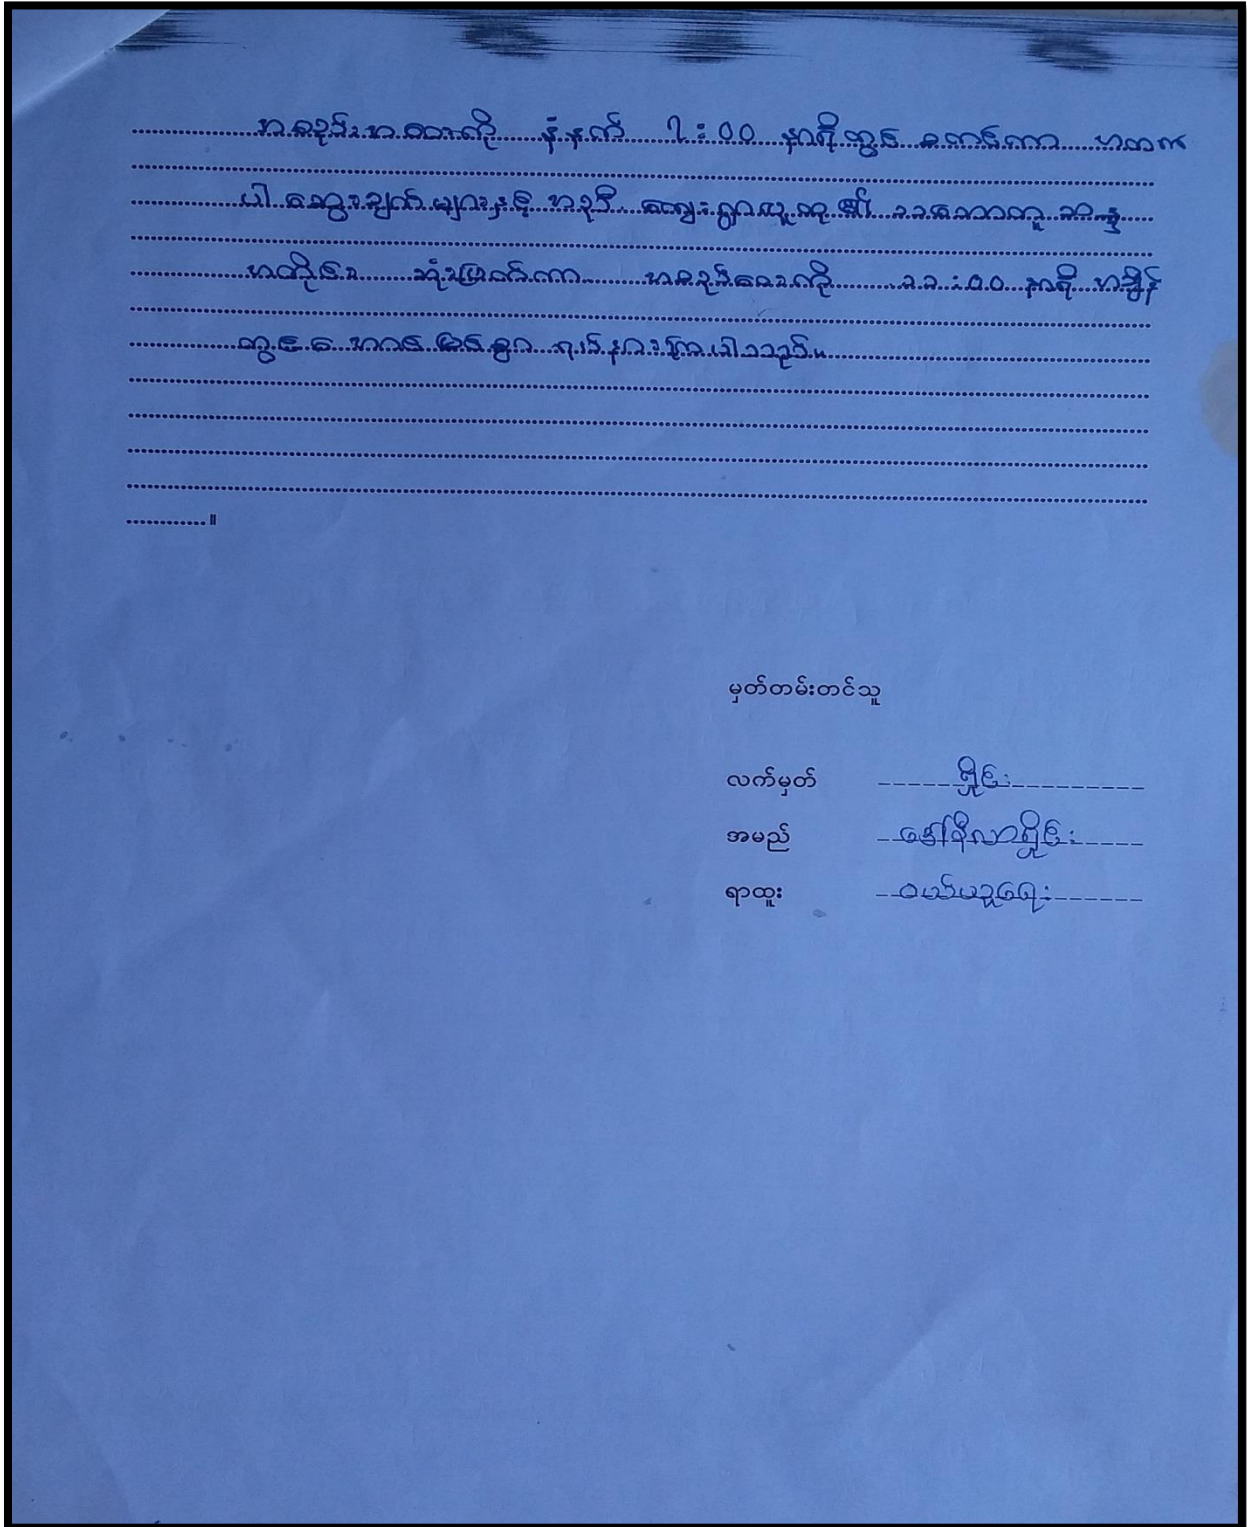 အစည်းအဝေးကို နံနက် ၇:၀၀ နာရီတွင် စတင်ကာ အထက
ပါ ဆွေးနွေးချက်များနှင့် အညီ ကျေးရွာလူထု၏ သဘောတူ
အတိုင်း ဆုံးဖြတ်ကာ အစည်းဝေးကို ၁၁:၀၀ နာရီ အချိန်
တွင် အောင်မြင်စွာ ရပ်နားကြပါသည်။
။
မှတ်တမ်းတင်သူ
လက်မှတ် ရှိုင်း
အမည် ဒေါ်နီလာရှိုင်း
ရာထူး